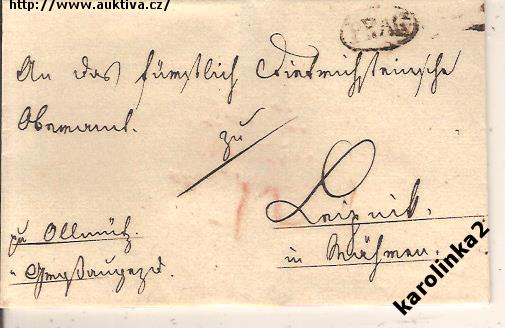 http://www.auktiva.cz/
PRAG
An das fürstlich Dietrichsteinsche
Oberamt.
zu
Leipnik.
in Mähren.
zu Ollmütz.
karolinka2